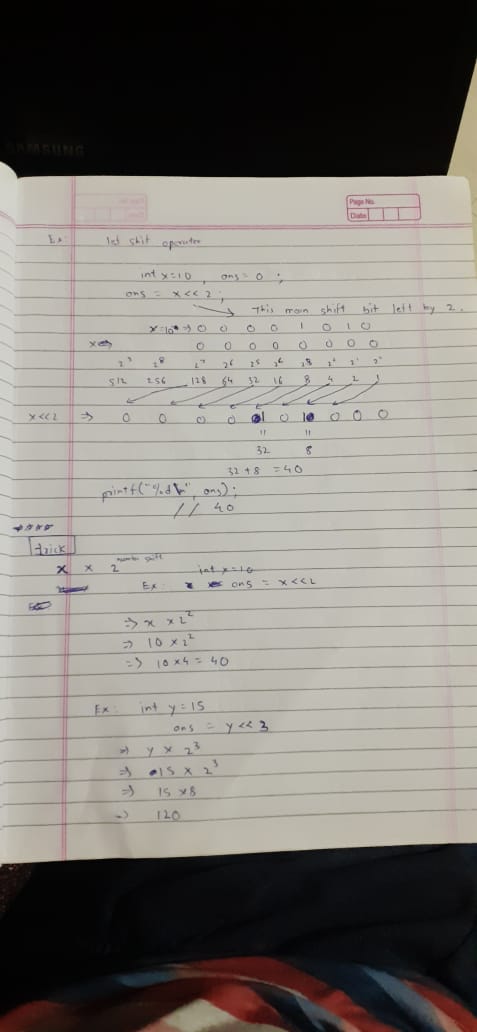 SAMSUNG
Page No.
Date
Ex: left shit operater
int x=10 , ans = 0 ;
ans = x << 2 ;
This mean shift bit left by 2.
x=10 => 0 0 0 0 1 0 1 0
x=> 0 0 0 0 0 0 0 0
512 256 128 64 32 16 8 4 2 1
x<<2 => 0 0 0 0 1 0 1 0 0 0
" "
32 8
32 + 8 = 40
printf("%d\n", ans);
// 40
trick
x x 2 number shift
int x=10
Ex: ans = x<<2
=> x x 2²
=> 10 x 2²
=> 10 x 4 = 40
Ex: int y = 15
ans = y << 3
=> y x 2³
=> 15 x 2³
=> 15 x 8
=> 120